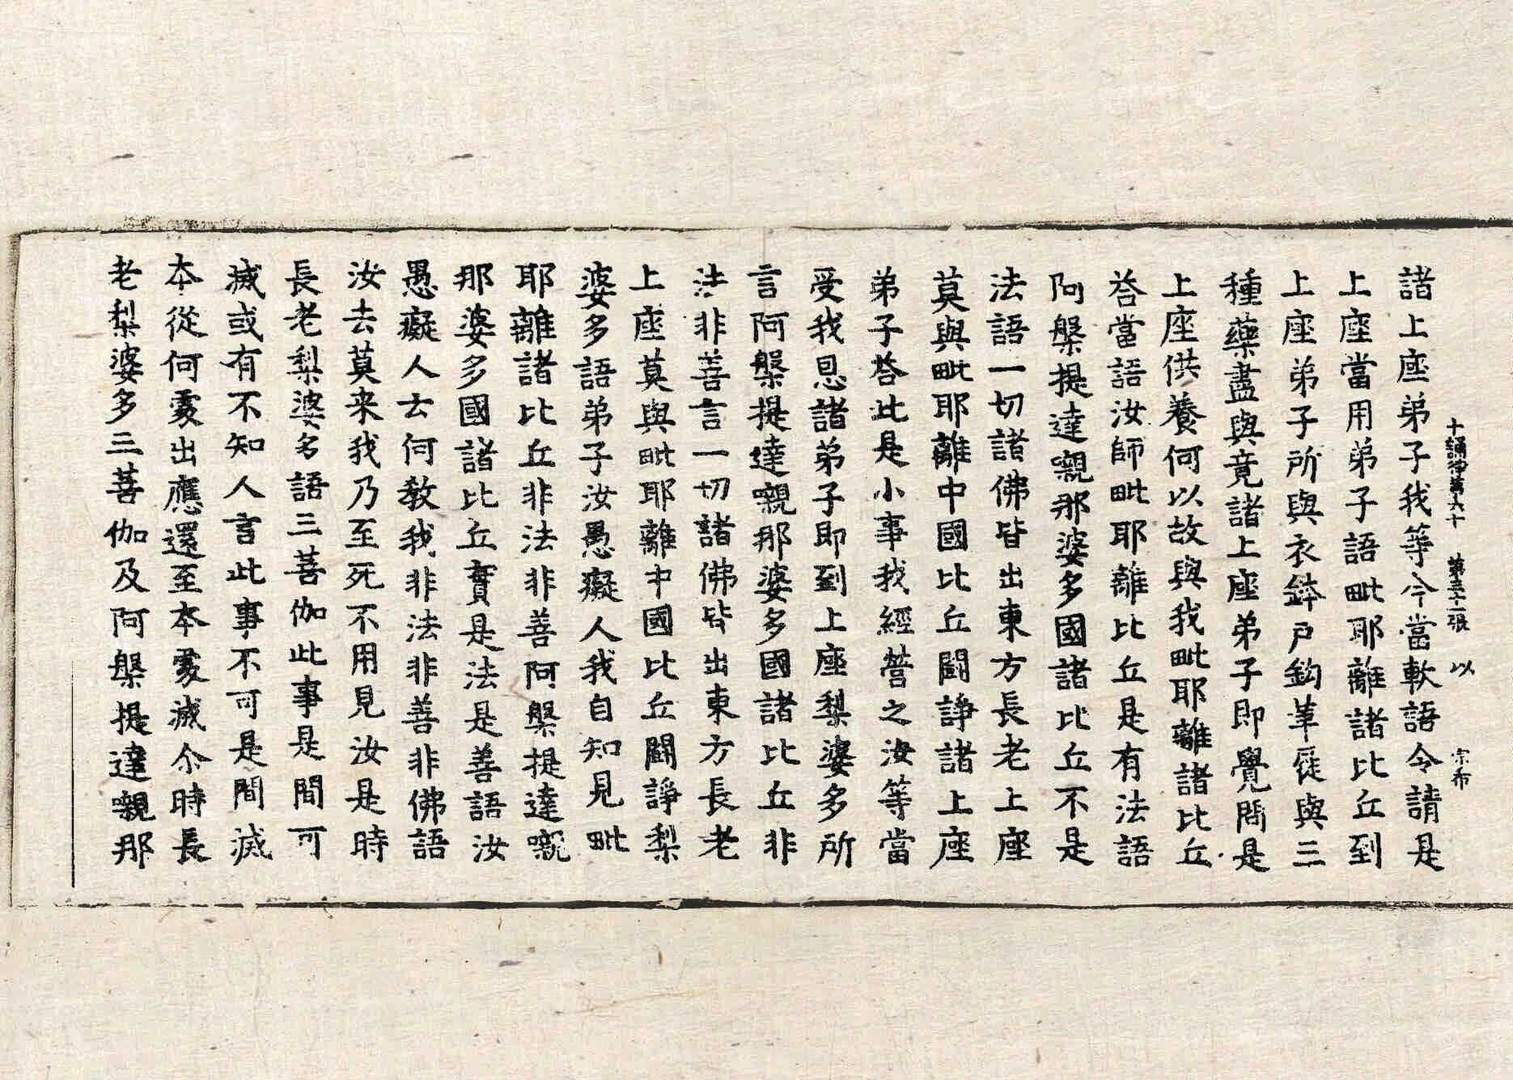 十誦律第六十 第三十二張 以 宗布
諸上座弟子我等今當軟語令請是
上座當用弟子語毗耶離諸比丘到
上座弟子所與衣鉢戶鉤革屣與三
種藥盡與竟諸上座弟子即覺問是
上座供養何以故與我毗耶離諸比丘
荅當語汝師毗耶離比丘是有法語
阿槃提達嚫那婆多國諸比丘不是
法語一切諸佛皆出東方長老上座
莫與毗耶離中國比丘鬪諍諸上座
弟子荅此是小事我經營之汝等當
受我恩諸弟子即到上座梨婆多所
言阿槃提達嚫那婆多國諸比丘非
法非善言一切諸佛皆出東方長老
上座莫與毗耶離中國比丘鬪諍梨
婆多語弟子汝愚癡人我自知見毗
耶離諸比丘非法非善阿槃提達嚫
那婆多國諸比丘實是法是善語汝
愚癡人云何教我非法非善非佛語
汝去莫来我乃至死不用見汝是時
長老梨婆多語三菩伽此事是間可
滅或有不知人言此事不可是間滅
本從何處出應還至本處滅尒時長
老梨婆多三菩伽及阿槃提達嚫那